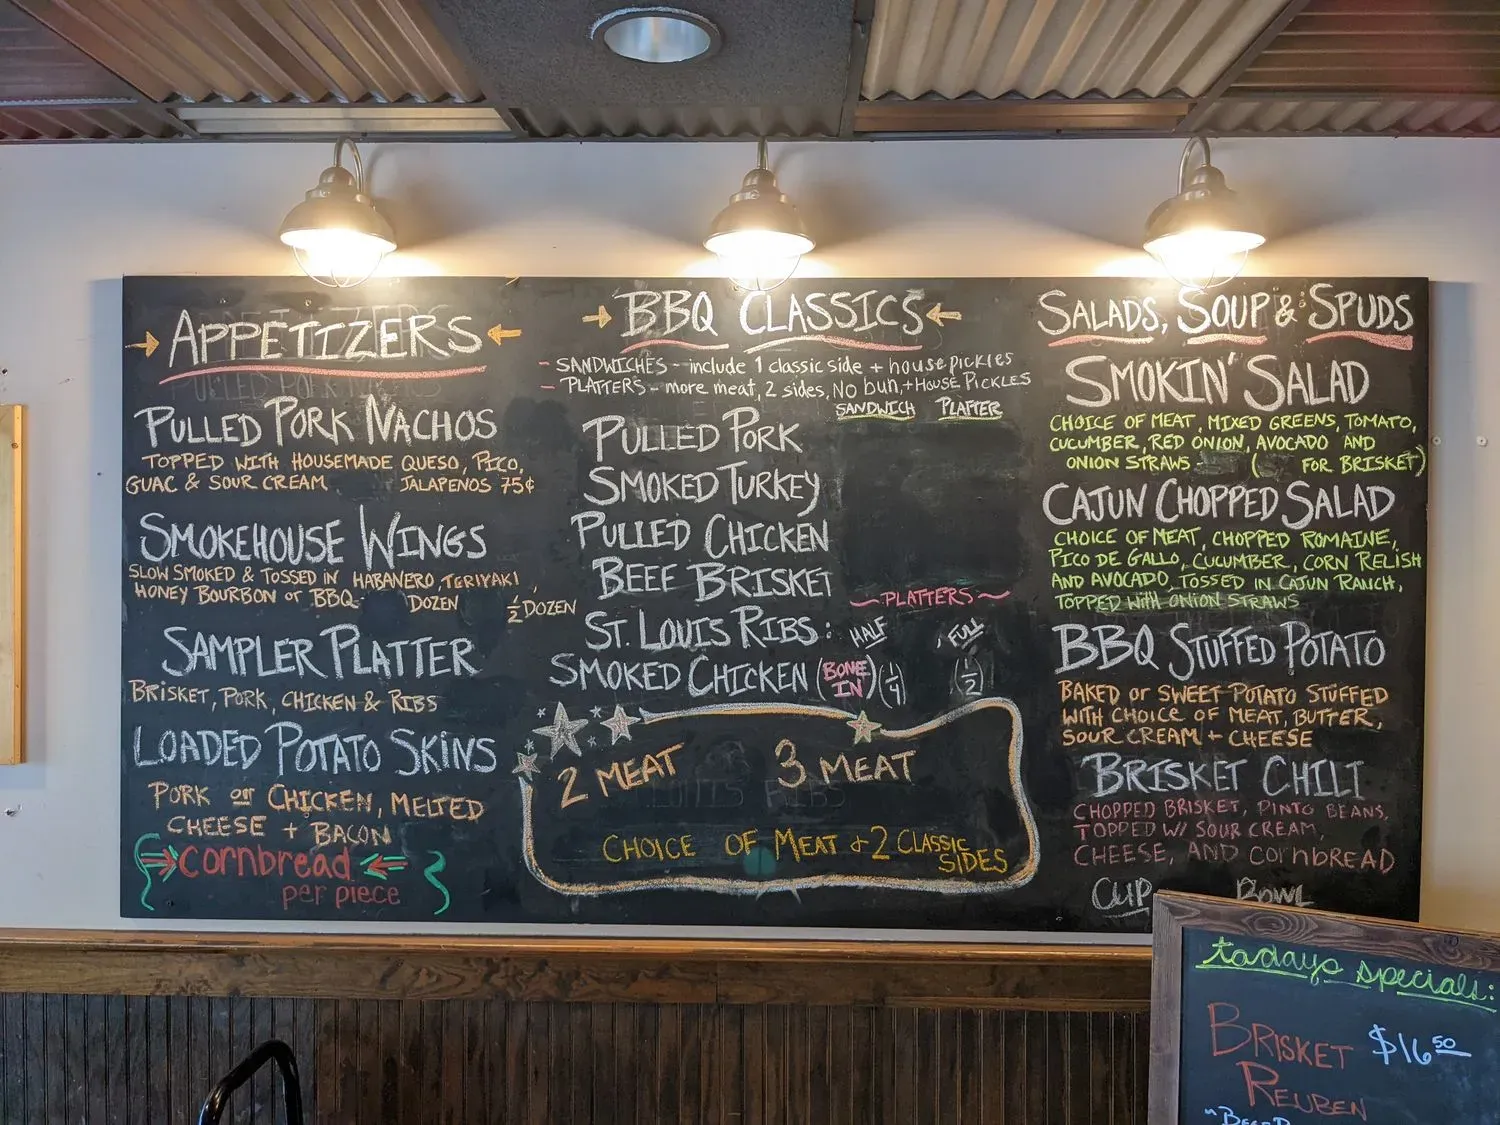 APPETIZERS
PULLED PORK NACHOS
TOPPED WITH HOUSEMADE QUESO, PICO,
GUAC & SOUR CREAM JALAPENOS 75¢
SMOKEHOUSE WINGS
SLOW SMOKED & TOSSED IN HABANERO, TERIYAKI,
HONEY BOURBON or BBQ DOZEN ½ DOZEN
SAMPLER PLATTER
BRISKET, PORK, CHICKEN & RIBS
LOADED POTATO SKINS
PORK or CHICKEN, MELTED
CHEESE + BACON
cornbread
per piece
BBQ CLASSICS
- SANDWICHES - include 1 classic side + house pickles
- PLATTERS - more meat, 2 sides, NO bun, + HOUSE PICKLES
SANDWICH PLATTER
PULLED PORK
SMOKED TURKEY
PULLED CHICKEN
BEEF BRISKET
~PLATTERS~
ST. LOUIS RIBS: HALF FULL
SMOKED CHICKEN (BONE IN) (¼) (½)
2 MEAT 3 MEAT
CHOICE OF MEAT + 2 CLASSIC
SIDES
SALADS, SOUP & SPUDS
SMOKIN' SALAD
CHOICE OF MEAT, MIXED GREENS, TOMATO,
CUCUMBER, RED ONION, AVOCADO AND
ONION STRAWS ( FOR BRISKET)
CAJUN CHOPPED SALAD
CHOICE OF MEAT, CHOPPED ROMAINE,
PICO DE GALLO, CUCUMBER, CORN RELISH
AND AVOCADO, TOSSED IN CAJUN RANCH,
TOPPED WITH ONION STRAWS
BBQ STUFFED POTATO
BAKED or SWEET POTATO STUFFED
WITH CHOICE OF MEAT, BUTTER,
SOUR CREAM + CHEESE
BRISKET CHILI
CHOPPED BRISKET, PINTO BEANS,
TOPPED W/ SOUR CREAM,
CHEESE, AND CORNBREAD
CUP BOWL
todays specials:
BRISKET $16.50
REUBEN